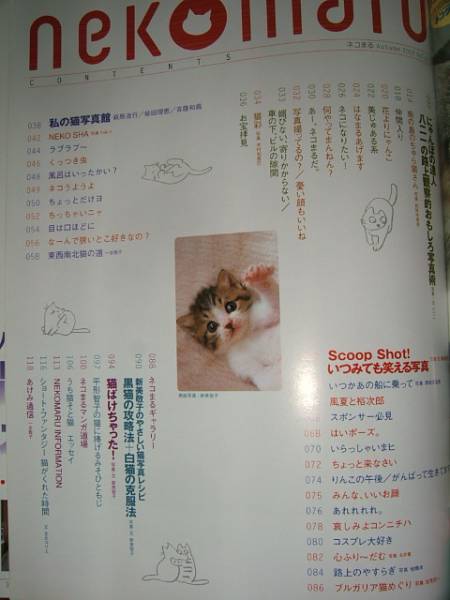 nekomaru
CONTENTS
ネコまる Autumn
にゃんぽの達人
016 島のあちこち猫さん
018 仲間入り
020 花よりにゃんこ
022 美じゅある系
024 はなまるあげます
026 ネコになりたい！
028 何やってまんねん？
030 あー、ネコまるだ。
032 写真撮ってるの？／憂い顔もいいね
033 媚びない、寄りかからない／
車の下、ビルの隙間
034 猫彩
036 お宝拝見
038 私の猫写真館
042 NEKO SHA
044 ラブラブ〜
046 くっつき虫
048 風呂はいったかい？
049 ネコうようよ
050 ちょっとだけヨ
052 ちっちゃいニャ
054 目は口ほどに
056 なーんで狭いとこ好きなの？
058 東西南北猫の道
Scoop Shot!
いつみても笑える写真
いつかあの船に乗って
風夏と裕次郎
スポンサー必見
068 はいポーズ。
070 いらっしゃいまヒ
072 ちょっと来なさい
074 りんこの午後／がんばって生きて
075 みんな、いいお顔
076 あれれれれ。
078 哀しみよコンニチハ
080 コスプレ大好き
082 心ふり〜だむ
084 路上のやすらぎ
086 ブルガリア猫めぐり
088 ネコまるギャラリー
090 新美敬子のやさしい猫写真レシピ
黒猫の攻略法＋白猫の克服法
094 猫ばけちゃった！
097 平形智子の猫に捧げるみそひともじ
100 ネコまるマンガ道場
106 うち猫そと猫 エッセイ
111 NEKOMARU INFORMATION
116 ショート・ファンタジー 猫がくれた時間
118 あけみ通信